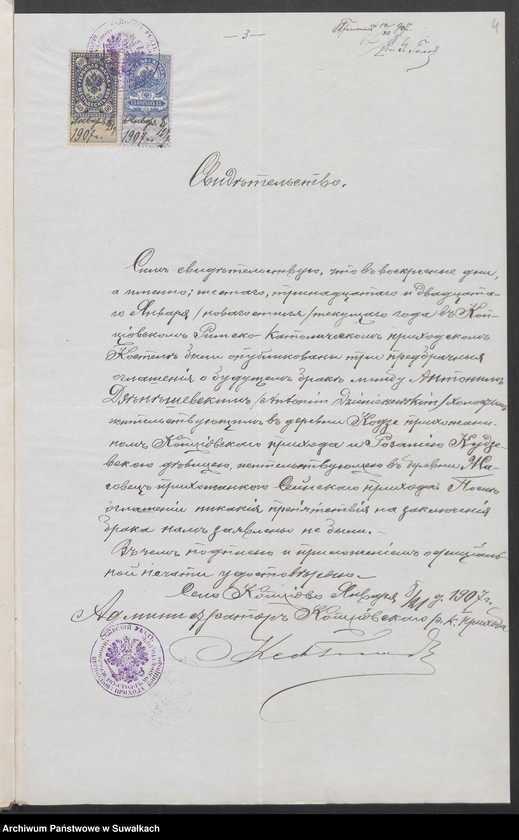 — 3 —
4
Января 8/21 1907 г.
Января 8/21 1907 г.
15 КОПѢЕКЪ 15
Свидѣтельство.
Симъ свидѣтельствую, что въ воскресные дни,
а именно: шестаго, тринадцатаго и двадцата-
го Января /новаго стиля/ текущаго года въ Коп-
ціовскомъ Римско-Католическомъ приходскомъ
Костелѣ были опубликованы три предбрачныя
оглашенія о будущемъ бракѣ между Антономъ
/Antonim Dzieniszewskim/ холостымъ
жительствующимъ въ деревни прихожани-
номъ Копціовскаго прихода и Розаліею Кудзе-
вскою дѣвицею, жительствующею въ деревни
прихожанкою Сейнскаго прихода. Послѣ
оглашеніи никакія препятствія на заключенія
брака намъ заявлены не были. —
Въ чемъ подписью и приложеніемъ официаль-
ной печати удостовѣряю. —
Село Копціово Января 8/21 д. 1907 г.
Администраторъ Копціовскаго р. к. прихода
Archiwum Państwowe w Suwałkach